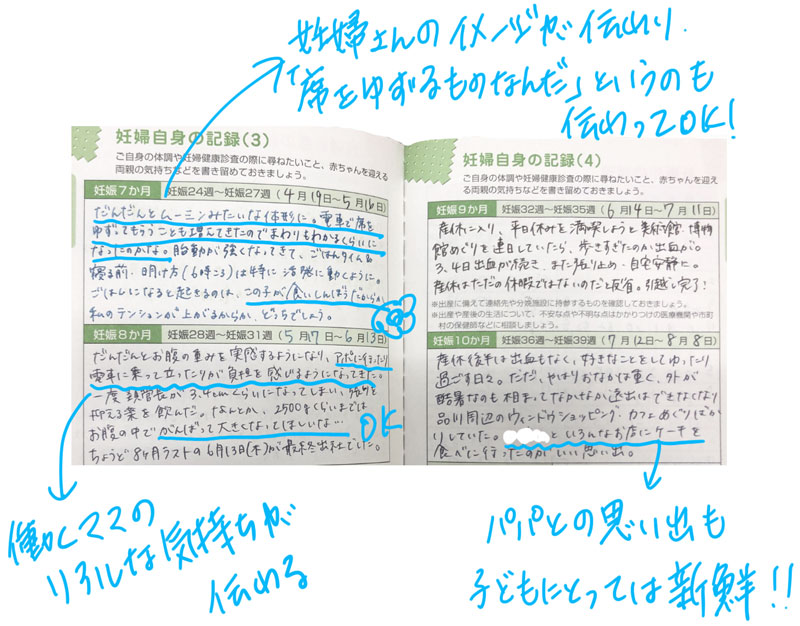 妊婦さんのイメージが伝わり、
「席をゆずるものなんだ」というのも
伝わってOK!
妊婦自身の記録(3)
ご自身の体調や妊婦健康診査の際に尋ねたいこと、赤ちゃんを迎える
両親の気持ちなどを書き留めておきましょう。
妊娠7か月 妊娠24週~妊娠27週(4月19日~5月16日)
だんだんとムーミンみたいな体形に。電車で席を
ゆずってもらうことも増えてきたのでまわりもわかるくらいに
なったのかな。胎動が強くなってきて、ごはんタイム&
寝る前・明け方(6時ごろ)は特に活発に動くように。
ごはんになると起きるのは、この子が食いしんぼうだからか
私のテンションが上がるからか、どっちでしょう。
妊娠8か月 妊娠28週~妊娠31週(5月17日~6月13日)
だんだんとお腹の重みを実感するようになり、アポに行ったり
電車に乗って立ったりが負担を感じるようになってきた。
一度頚管長が3.4cmくらいになってしまい、張りを
抑える薬を飲んだ。なんとか、2500gくらいまでは
お腹の中でがんばって大きくなってほしいな…
OK
ちょうど8ヶ月ラストの6月13日(木)が最終出社でした。
働くママの
リアルな気持ちが
伝わる
妊婦自身の記録(4)
ご自身の体調や妊婦健康診査の際に尋ねたいこと、赤ちゃんを迎え
両親の気持ちなどを書き留めておきましょう。
妊娠9か月 妊娠32週~妊娠35週(6月14日~7月11日)
産休に入り、平日休みを満喫しようと美術館・博物
館めぐりを連日していたら、歩きすぎたのか出血が。
3、4日出血が続き、また張り止め・自宅安静に。
産休はただの休暇ではないのだと反省。引越し完了!
※出産に備えて連絡先や分娩施設に持参するものを確認しておきましょう。
※出産や産後の生活について、不安な点や不明な点はかかりつけの医療機関や市町
村の保健師などに相談しましょう。
妊娠10か月 妊娠36週~妊娠39週(7月12日~8月8日)
産休後半は出血もなく、好きなことをしてゆったり
過ごす日々。ただ、やはりおなかは重く、外が
酷暑なのも相まってなかなか遠出はできなくなり
品川周辺のウィンドウショッピング・カフェめぐりばか
りしていた。 といろんなお店にケーキを
食べに行ったのがいい思い出。
パパとの思い出も
子どもにとっては新鮮!!